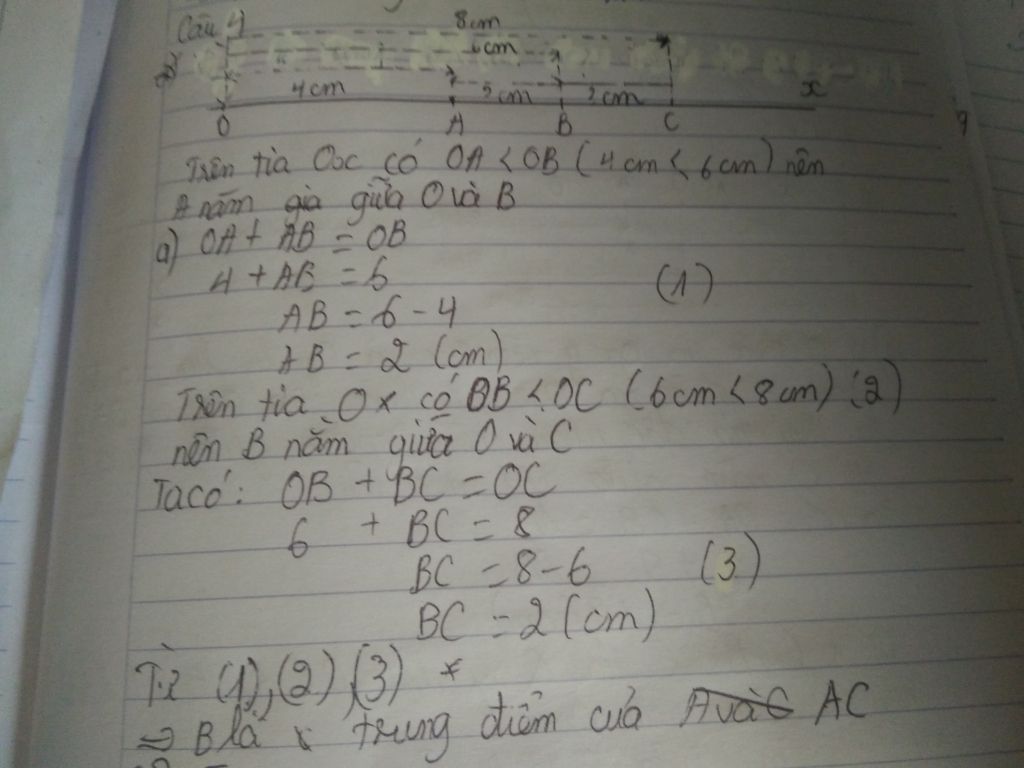 Câu 4
8cm
6cm
4cm 2cm 2cm x
O A B C
Trên tia Ox có OA < OB (4cm < 6cm) nên
A nằm giữa O và B
a) OA + AB = OB
4 + AB = 6 (1)
AB = 6 - 4
AB = 2 (cm)
Trên tia Ox có OB < OC (6cm < 8cm) (2)
nên B nằm giữa O và C
Ta có: OB + BC = OC
6 + BC = 8
BC = 8 - 6 (3)
BC = 2 (cm)
Từ (1), (2), (3)
=> B là trung điểm của AC